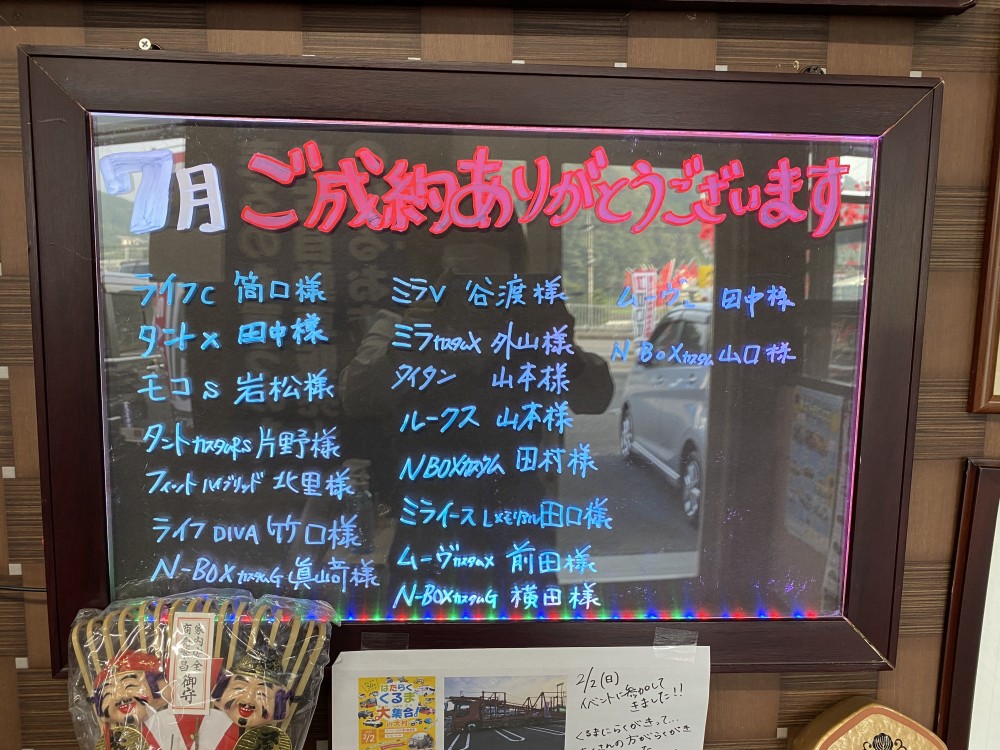 7月 ご成約ありがとうございます
ライフC 筒口様
タントX 田中様
モコS 岩松様
タントカスタムRS 片野様
フィットハイブリッド 北里様
ライフ DIVA 竹口様
N-BOXカスタムG 眞山奇様
ミラV 谷渡様
ミラカスタムX 外山様
タイタン 山本様
ルークス 山本様
NBOXカスタム 田村様
ミライースLメモリアル 田口様
ムーヴカスタムX 前田様
N-BOXカスタムG 横田様
ムーヴ 田中様
N-BOXカスタム 山口様
家内安全
御守
はたらく
くるま
大集合!
2/2
2/2(日)
イベントに参加して
きました!!
くるまにらくがきって…
さんの方がらくがき